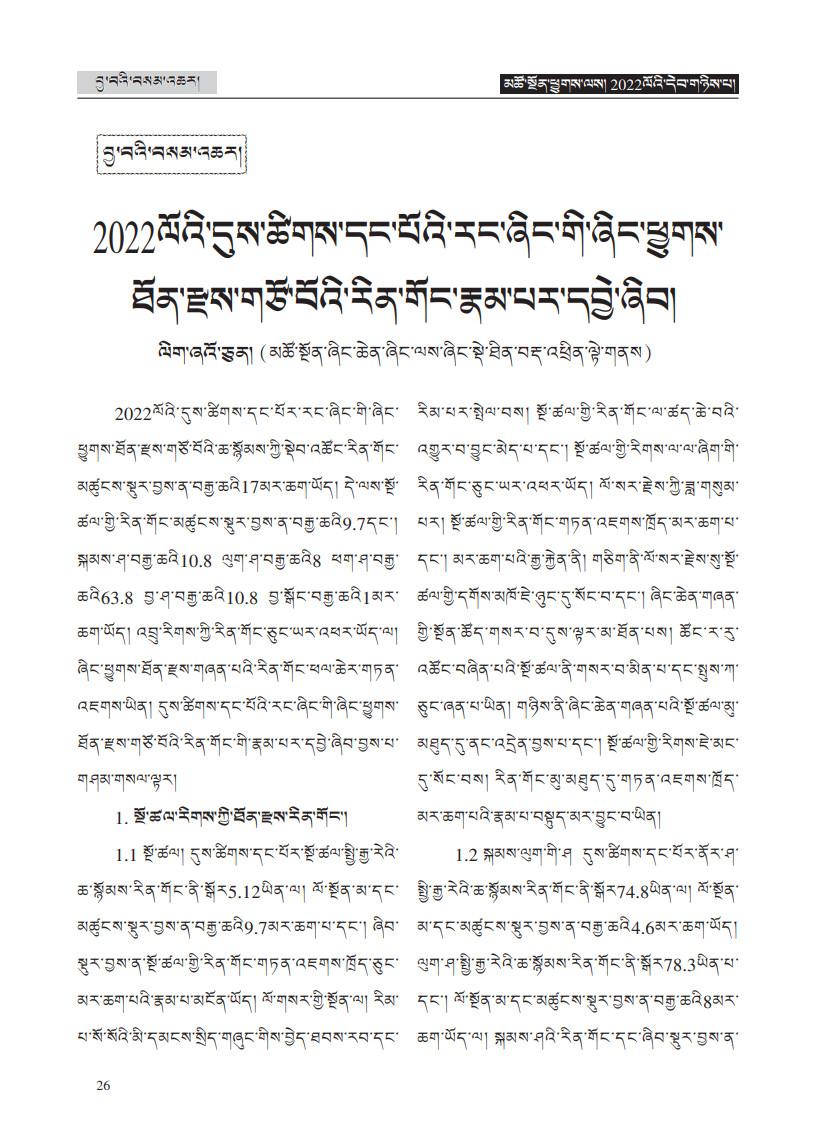 བྱ་བའི་བསམ་འཆར།
མཚོ་སྔོན་ཕྱུགས་ལས། 2022ལོའི་དེབ་གཉིས་པ།
བྱ་བའི་བསམ་འཆར།
2022ལོའི་དུས་ཚིགས་དང་པོའི་རང་ཞིང་གི་ཞིང་ཕྱུགས་
ཐོན་རྫས་གཙོ་བོའི་རིན་གོང་རྣམ་པར་དབྱེ་ཞིབ།
ལེག་ཞའོ་རྩུན། (མཚོ་སྔོན་ཞིང་ཆེན་ཞིང་ལས་ཞིང་སྡེ་ཐིན་བརྡ་འཕྲིན་ལྟེ་གནས)
2022ལོའི་དུས་ཚིགས་དང་པོར་རང་ཞིང་གི་ཞིང་
ཕྱུགས་ཐོན་རྫས་གཙོ་བོའི་ཆ་སྙོམས་ཀྱི་སྡེབ་འཚོང་རིན་གོང་
མཚུངས་སྡུར་བྱས་ན་བརྒྱ་ཆའི17མར་ཆག་ཡོད། དེ་ལས་སྔོ་
ཚལ་གྱི་རིན་གོང་མཚུངས་སྡུར་བྱས་ན་བརྒྱ་ཆའི9.7དང་།
སྐམས་ཤ་བརྒྱ་ཆའི10.8 ལུག་ཤ་བརྒྱ་ཆའི8 ཕག་ཤ་བརྒྱ་
ཆའི63.8 བྱ་ཤ་བརྒྱ་ཆའི10.8 བྱ་སྒོང་བརྒྱ་ཆའི1མར་
ཆག་ཡོད། འབྲུ་རིགས་ཀྱི་རིན་གོང་ཅུང་ཡར་འཕར་ཡོད་ལ།
ཞིང་ཕྱུགས་ཐོན་རྫས་གཞན་པའི་རིན་གོང་ཕལ་ཆེར་གཏན་
འཇགས་ཡིན། དུས་ཚིགས་དང་པོའི་རང་ཞིང་གི་ཞིང་ཕྱུགས་
ཐོན་རྫས་གཙོ་བོའི་རིན་གོང་གི་རྣམ་པར་དབྱེ་ཞིབ་བྱས་པ་
གཤམ་གསལ་ལྟར།
1. སྔོ་ཚལ་རིགས་ཀྱི་ཐོན་རྫས་རིན་གོང་།
1.1 སྔོ་ཚལ། དུས་ཚིགས་དང་པོར་སྔོ་ཚལ་སྤྱི་རྒྱ་རེའི་
ཆ་སྙོམས་རིན་གོང་ནི་སྒོར5.12ཡིན་ལ། ལོ་སྔོན་མ་དང་
མཚུངས་སྡུར་བྱས་ན་བརྒྱ་ཆའི9.7མར་ཆག་པ་དང་། ཞིབ་
སྡུར་བྱས་ན་སྔོ་ཚལ་གྱི་རིན་གོང་གཏན་འཇགས་ཁྲོད་ཅུང་
མར་ཆག་པའི་རྣམ་པ་མངོན་ཡོད། ལོ་གསར་གྱི་སྔོན་ལ། རིམ་
པ་སོ་སོའི་མི་དམངས་སྲིད་གཞུང་གིས་བྱེད་ཐབས་རབ་དང་
རིམ་པར་སྤེལ་བས། སྔོ་ཚལ་གྱི་རིན་གོང་ལ་ཚད་ཆེ་བའི་
འགྱུར་བ་བྱུང་མེད་པ་དང་། སྔོ་ཚལ་གྱི་རིགས་ལ་ལ་ཞིག་གི་
རིན་གོང་ཅུང་ཡར་འཕར་ཡོད། ལོ་སར་རྗེས་ཀྱི་ཟླ་གསུམ་
པར། སྔོ་ཚལ་གྱི་རིན་གོང་གཏན་འཇགས་ཁྲོད་མར་ཆག་པ་
དང་། མར་ཆག་པའི་རྒྱ་རྐྱེན་ནི། གཅིག་ནི་ལོ་སར་རྗེས་སུ་སྔོ་
ཚལ་གྱི་དགོས་མཁོ་ཇེ་ཉུང་དུ་སོང་བ་དང་། ཞིང་ཆེན་གཞན་
གྱི་སྔོན་ཚོད་གསར་བ་དུས་ལྟར་མ་ཐོན་པས། ཚོང་ར་རུ་
འཚོང་བཞིན་པའི་སྔོ་ཚལ་ནི་གསར་བ་མིན་པ་དང་སྤུས་ཀ་
ཅུང་ཞན་པ་ཡིན། གཉིས་ནི་ཞིང་ཆེན་གཞན་པའི་སྔོ་ཚལ་མུ་
མཐུད་དུ་ནང་འདྲེན་བྱས་པ་དང་། སྔོ་ཚལ་གྱི་རིགས་ཇེ་མང་
དུ་སོང་བས། རིན་གོང་མུ་མཐུད་དུ་གཏན་འཇགས་ཁྲོད་
མར་ཆག་པའི་རྣམ་པ་བསྟུད་མར་བྱུང་བ་ཡིན།
1.2 སྐམས་ལུག་གི་ཤ དུས་ཚིགས་དང་པོར་ནོར་ཤ་
སྤྱི་རྒྱ་རེའི་ཆ་སྙོམས་རིན་གོང་ནི་སྒོར74.8ཡིན་ལ། ལོ་སྔོན་
མ་དང་མཚུངས་སྡུར་བྱས་ན་བརྒྱ་ཆའི4.6མར་ཆག་ཡོད།
ལུག་ཤ་སྤྱི་རྒྱ་རེའི་ཆ་སྙོམས་རིན་གོང་ནི་སྒོར78.3ཡིན་པ་
དང་། ལོ་སྔོན་མ་དང་མཚུངས་སྡུར་བྱས་ན་བརྒྱ་ཆའི8མར་
ཆག་ཡོད་ལ། སྐམས་ཤའི་རིན་གོང་དང་ཞིབ་སྡུར་བྱས་ན་
26